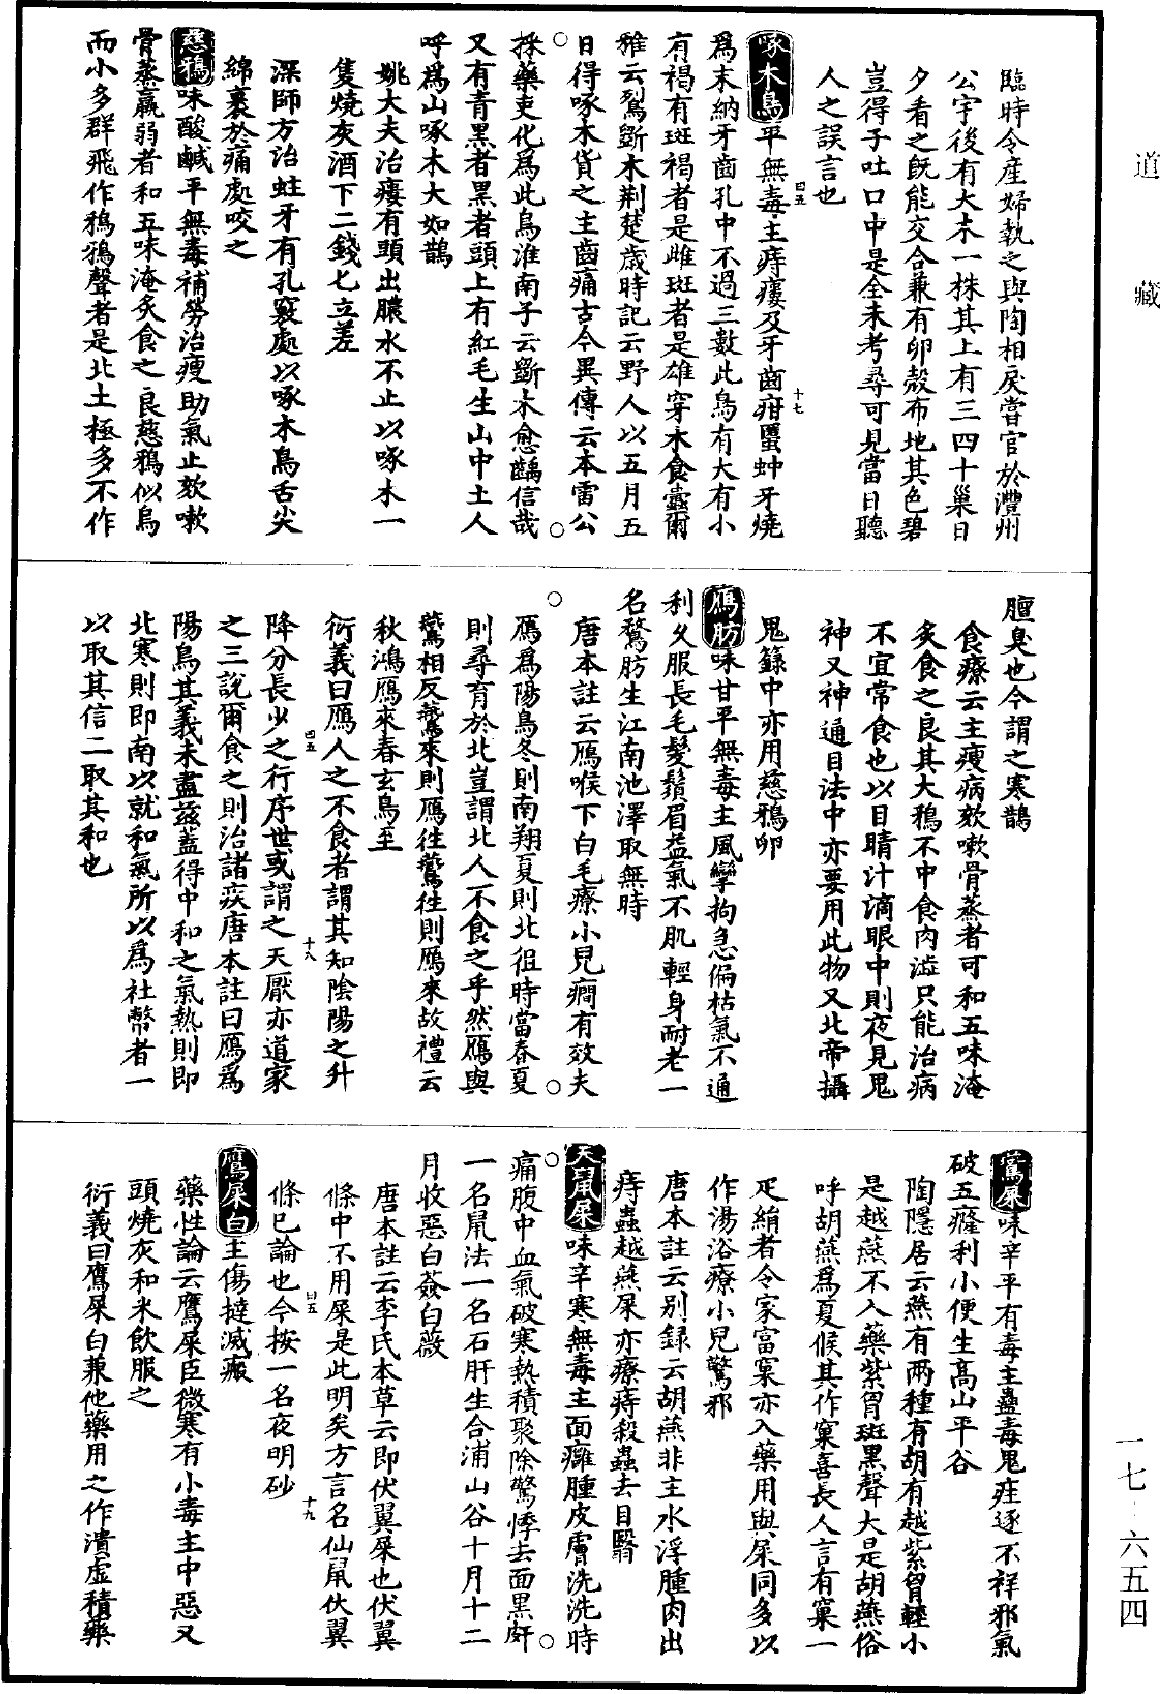 道藏
臨時令産婦執之與陶相戾嘗官於澧州
公宇後有大木一株其上有三四十巢日
夕看之旣能交合兼有卵殼布地其色碧
豈得子吐口中是全未考尋可見當日聽
人之誤言也
啄木鳥平無毒主痔瘻及牙齒疳䘌蚛牙燒
爲末納牙齒孔中不過三數此鳥有大有小
有褐有斑褐者是雌斑者是雄穿木食蠹爾
雅云鴷斲木荆楚歲時記云野人以五月五
日得啄木貨之主齒痛古今異傳云本雷公
採藥吏化爲此鳥淮南子云斲木愈齲信哉
又有青黑者黑者頭上有紅毛生山中土人
呼爲山啄木大如鵲
姚大夫治瘻有頭出膿水不止以啄木一
隻燒灰酒下二錢匕立差
深師方治蛀牙有孔竅處以啄木鳥舌尖
綿裹於痛處咬之
慈鴉味酸鹹平無毒補勞治瘦助氣止欬嗽
骨蒸羸弱者和五味淹炙食之良慈鴉似烏
而小多群飛作鴉鴉聲者是北土極多不作
四五
十七
膻臭也今謂之寒鵲
食療云主瘦病欬嗽骨蒸者可和五味淹
炙食之良其大鴉不中食肉澁只能治病
不宜常食也以目睛汁滴眼中則夜見鬼
神又神通目法中亦要用此物又北帝攝
鬼籙中亦用慈鴉卵
鴈肪味甘平無毒主風攣拘急偏枯氣不通
利久服長毛髮鬚眉益氣不飢輕身耐老一
名鶩肪生江南池澤取無時
唐本註云鴈喉下白毛療小兒癇有效夫
鴈爲陽鳥冬則南翔夏則北徂時當春夏
則尋育於北豈謂北人不食之乎然鴈與
鷰相反鷰來則鴈徃鷰徃則鴈來故禮云
秋鴻鴈來春玄鳥至
衍義曰鴈人之不食者謂其知陰陽之升
降分長少之行序世或謂之天厭亦道家
之三說爾食之則治諸疾唐本註曰鴈爲
陽鳥其義未盡茲蓋得中和之氣熱則即
北寒則即南以就和氣所以爲社幣者一
以取其信二取其和也
四五
十八
鷰屎味辛平有毒主蠱毒鬼疰逐不祥邪氣
破五癃利小便生高山平谷
陶隱居云燕有兩種有胡有越紫胷輕小
是越燕不入藥紫胷斑黑聲大是胡燕俗
呼胡燕爲夏候其作窠喜長人言有窠一
疋絹者令家富窠亦入藥用與屎同多以
作湯浴療小兒驚邪
唐本註云别録云胡燕非主水浮腫肉出
痔蟲越燕屎亦療痔殺蟲去目翳
天鼠屎味辛寒無毒主面癰腫皮膚洗洗時
痛腹中血氣破寒熱積聚除驚悸去面黑皯
一名鼠法一名石肝生合浦山谷十月十二
月收惡白薟白薇
唐本註云李氏本草云即伏翼屎也伏翼
條中不用屎是此明矣方言名仙鼠伏翼
條已論也今按一名夜明砂
鷹屎白主傷撻滅瘢
藥性論云鷹屎臣微寒有小毒主中惡又
頭燒灰和米飲服之
衍義曰鷹屎白兼他藥用之作潰虛積藥
四五
十九
一七·六五四